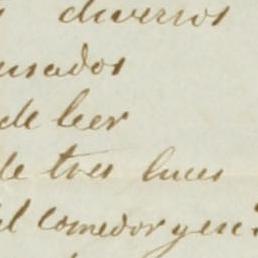 diversos
usados
de leer
de tres luces
el comedor y es